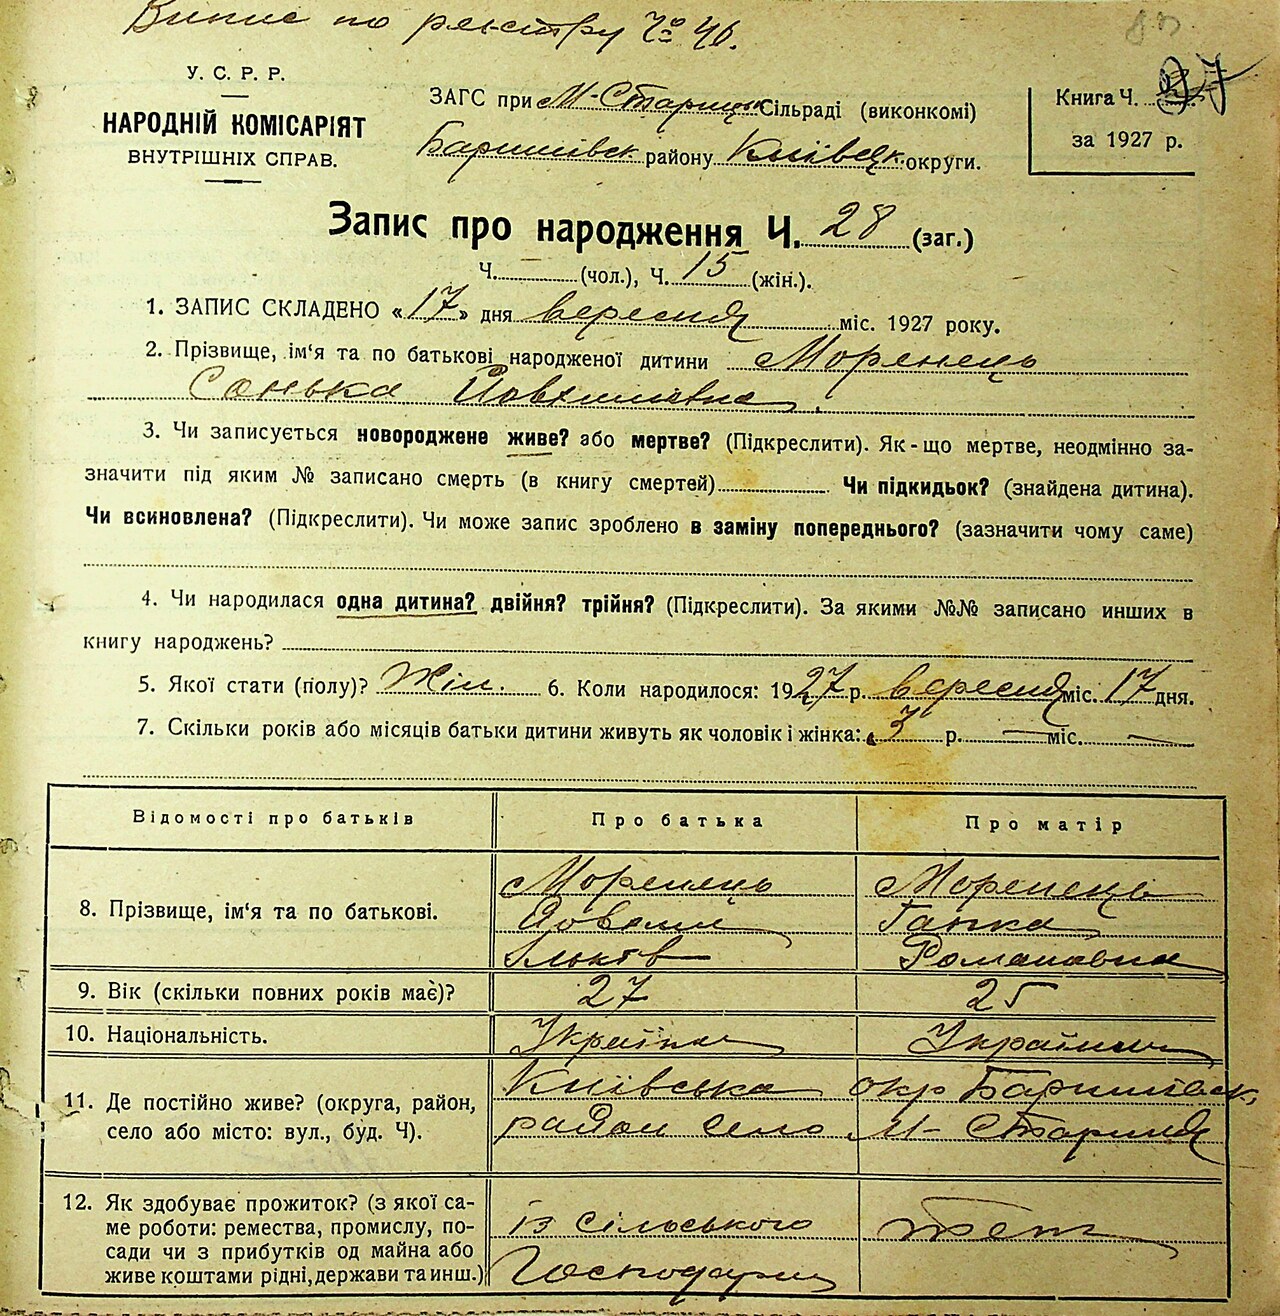 Випис по реєстру Ч° 46.
У. С. Р. Р.
НАРОДНІЙ КОМІСАРІЯТ
ВНУТРІШНІХ СПРАВ.
ЗАГС при М-Старицьк Сільраді (виконкомі)
Баришівськ району Київськ. округи.
Книга Ч. 97
за 1927 р.
Запис про народження Ч. 28 (заг.)
Ч. (чол.), Ч. 15 (жін.).
1. ЗАПИС СКЛАДЕНО «17» дня вересня міс. 1927 року.
2. Прізвище, ім'я та по батькові народженої дитини Моренець
Сонька Йовхимівна.
3. Чи записується новороджене живе? або мертве? (Підкреслити). Як-що мертве, неодмінно за-
значити під яким № записано смерть (в книгу смертей) Чи підкидьок? (знайдена дитина).
Чи всиновлена? (Підкреслити). Чи може запис зроблено в заміну попереднього? (зазначити чому саме)
4. Чи народилася одна дитина? двійня? трійня? (Підкреслити). За якими №№ записано инших в
книгу народжень?
5. Якої стати (полу)? Жін. 6. Коли народилося: 1927 р. вересня міс. 17 дня.
7. Скільки років або місяців батьки дитини живуть як чоловік і жінка: 3 р. — міс. —
Відомості про батьків Про батька Про матір
8. Прізвище, ім'я та по батькові.
Моренець Моренець
Йовхим Ганка
Ільків Романовна
9. Вік (скільки повних років має)? 27 25
10. Національність. Українець Українка
11. Де постійно живе? (округа, район,
село або місто: вул., буд. Ч).
Київська окр Баришівськ.
район село М-Стариця
12. Як здобуває прожиток? (з якої са-
ме роботи: ремества, промислу, по-
сади чи з прибутків од майна або
живе коштами рідні, держави та инш.)
із сільського теж
Господарки